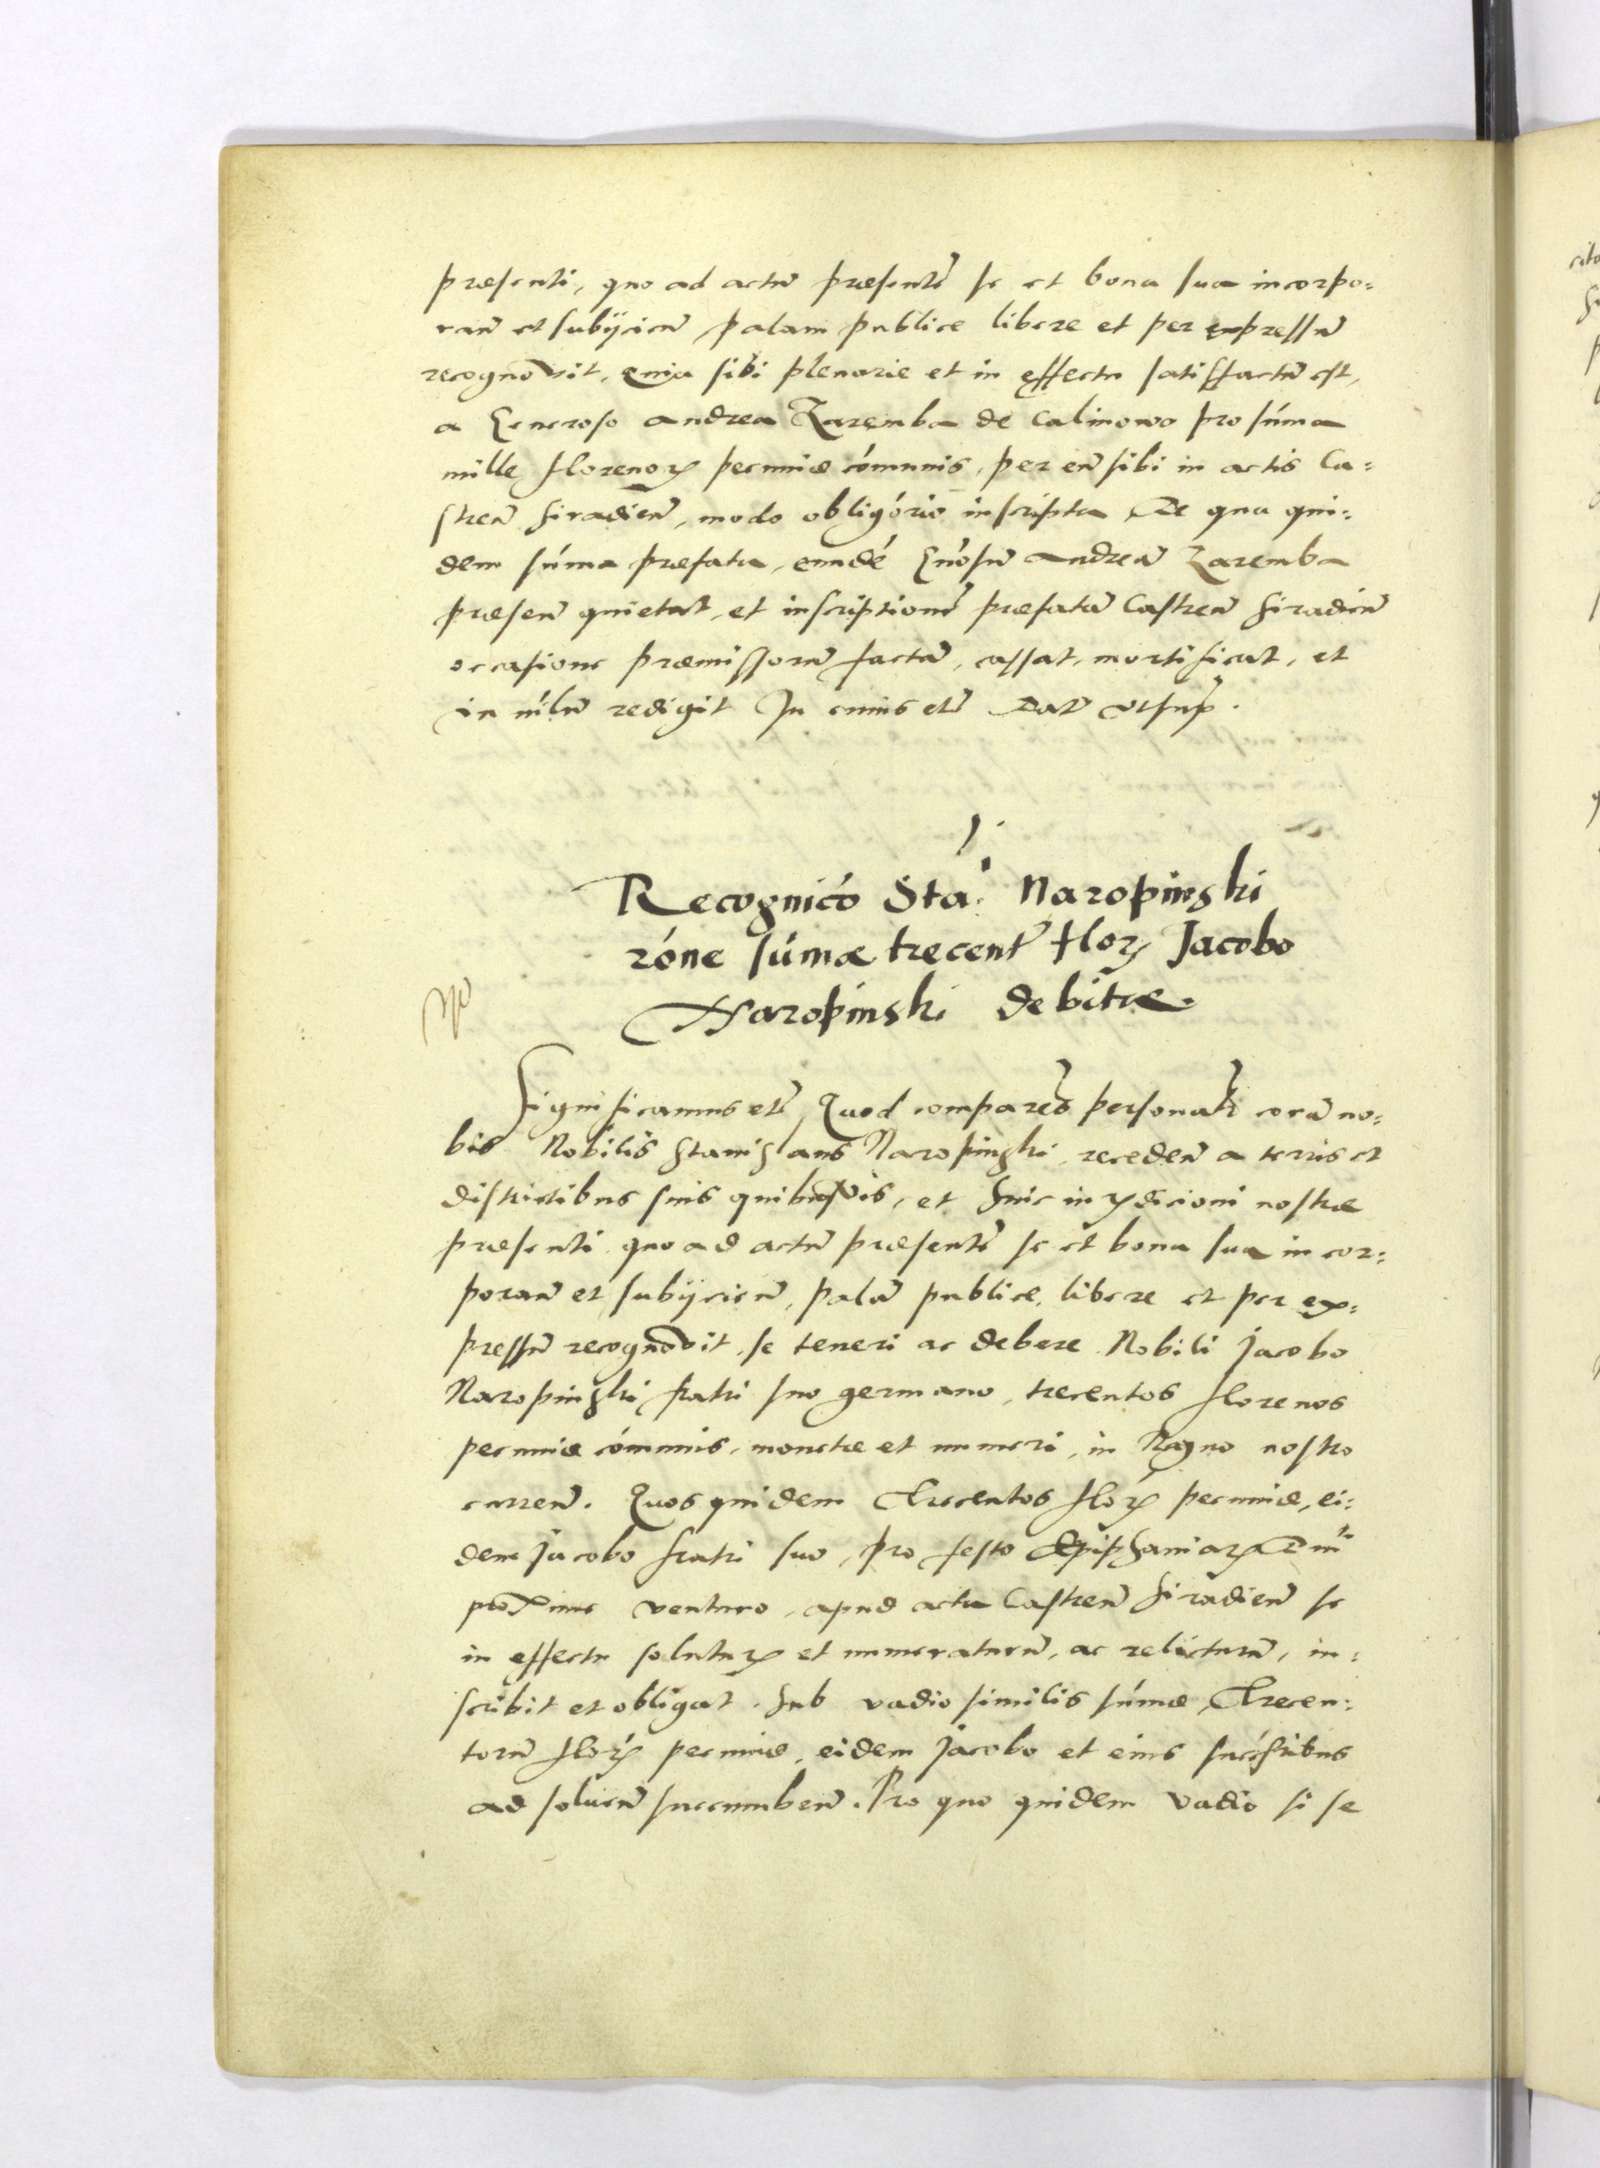 præsenti, quo ad actu͂ præsente͂ se et bona sua incorpo=
ran͂ et subijcien͂ palam publice libere et per expressu͂
recognovit, quia sibi plenarie et in effectu satisfactu͂ est,
a Generoso Andrea Zaremba de Calinowo pro su͂ma
mille florenoꝝ pecuniæ co͂munis, per eu͂ sibi in actis Ca=
stren͂ Siradien͂, modo obligo͂rio inscripta De qua qui=
dem su͂ma præfata, eunde͂ Gn͂osu͂ Andrea͂ Zaremba
præsen͂ quietat, et inscriptione͂ præfata͂ Castren͂ Siradien͂
occasione præmissoru͂ facta͂, cassat, mortificat, et
in ni͂lu͂ redigit In cuius etc͂ Dat͂ ut sup͂.
Recognic͂o Sta: Naropinski
ro͂ne su͂mæ trecent͂ floꝝ Jacobo
Naropinski debitæ.
Significamus etc͂ Quod comparen͂s personalr͂ cora͂ no=
bis Nobilis Stanislaus Naropinski, receden͂ a terris et
districtibus suis quibusvis, et huic iuꝝdicioni nostræ
præsenti quo ad actu͂ præsente͂ se et bona sua incor=
poran͂ et subijcien͂, pala͂ publice, libere et per ex=
pressu͂ recognovit, se teneri ac debere Nobili Jacobo
Naropinski fratri suo germano, trecentos florenos
pecuniæ co͂munis, monetæ et numeri, in Regno nostro
curren͂. Quos quidem Trecentos floꝝ pecuniæ, ei=
dem Jacobo fratri suo, pro festo Epiphaniaꝝ Dni͂
proxime venturo, apud acta Castren͂ Siradien͂ se
in effectu solutuꝝ et numeraturu͂, ac relicturu͂, in=
scribit et obligat. Sub vadio similis su͂mæ Trecen=
toru͂ floꝝ pecuniæ, eidem Jacobo et eius succ͂ssoribus
ad soluen͂ succumben͂. Pro quo quidem vadio si se